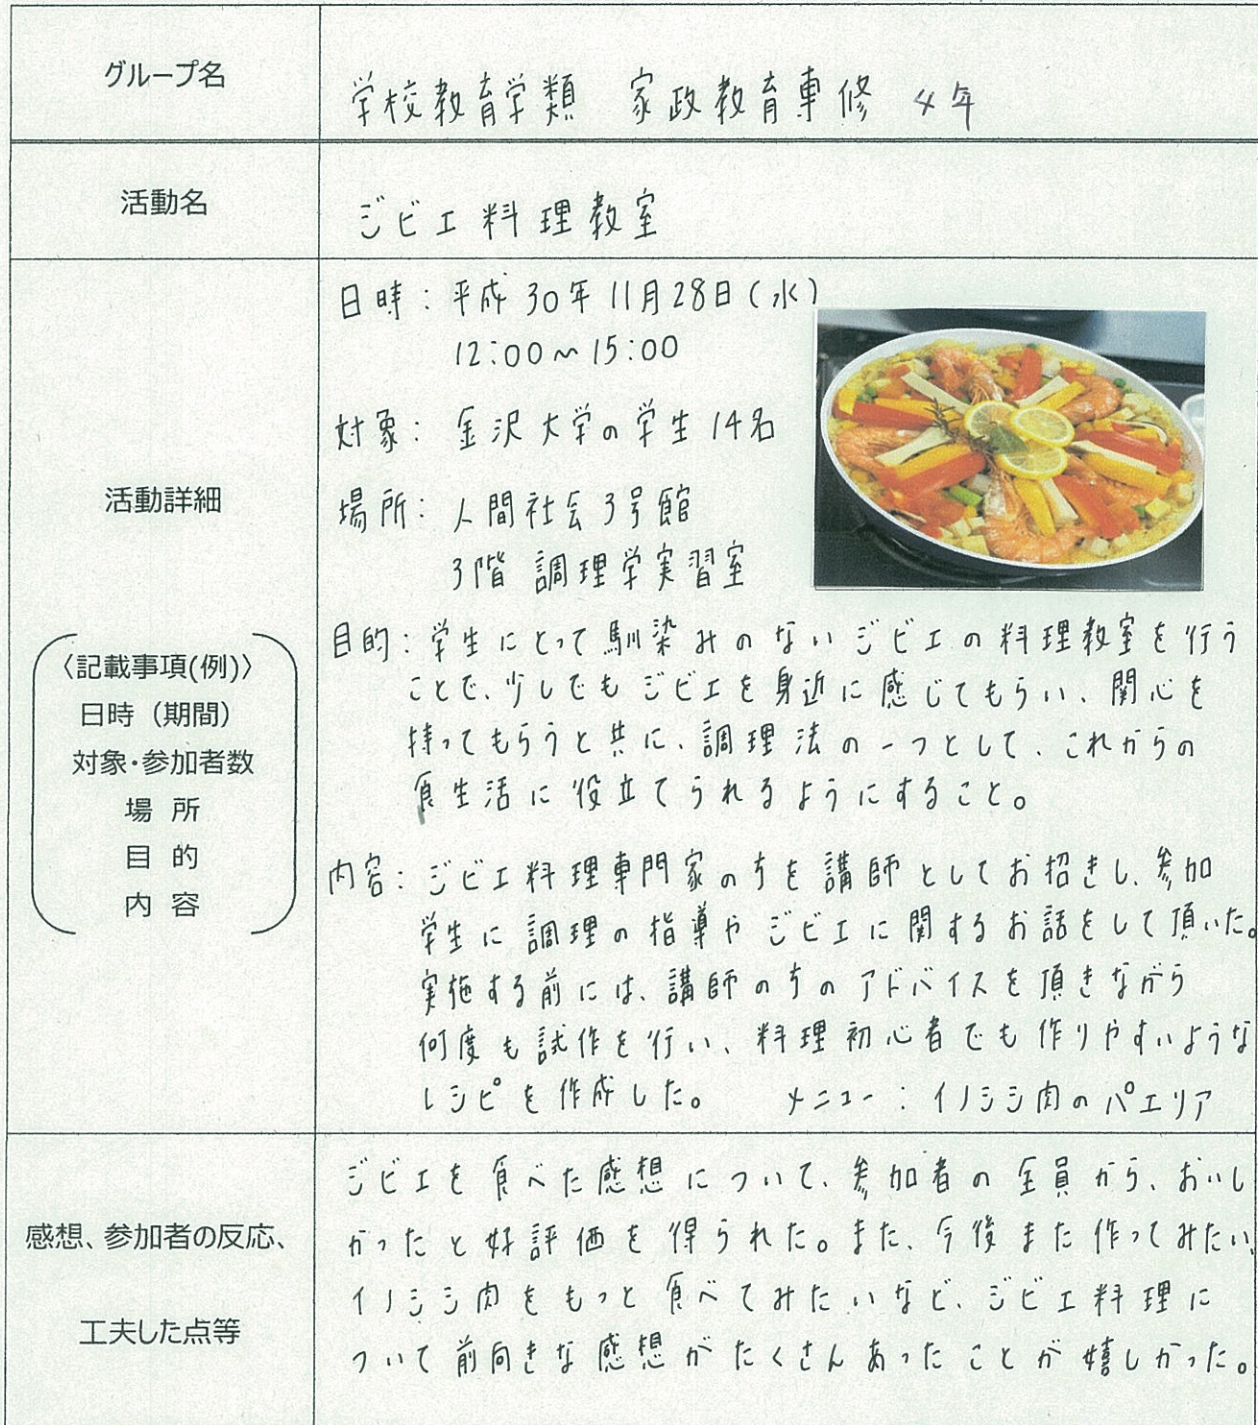 グループ名
学校教育学類 家政教育専修 4年
活動名
ジビエ料理教室
活動詳細
〈記載事項(例)〉
日時（期間）
対象・参加者数
場 所
目 的
内 容
日時：平成30年11月28日(水)
12:00〜15:00
対象：金沢大学の学生14名
場所：人間社会3号館
3階 調理学実習室
目的：学生にとって馴染みのないジビエの料理教室を行う
ことで、少しでもジビエを身近に感じてもらい、関心を
持ってもらうと共に、調理法の一つとして、これからの
食生活に役立てられるようにすること。
内容：ジビエ料理専門家の方を講師としてお招きし、参加
学生に調理の指導やジビエに関するお話をして頂いた。
実施する前には、講師の方のアドバイスを頂きながら
何度も試作を行い、料理初心者でも作りやすいような
レシピを作成した。 メニュー：イノシシ肉のパエリア
感想、参加者の反応、
工夫した点等
ジビエを食べた感想について、参加者の全員から、おいし
かったと好評価を得られた。また、今後また作ってみたい、
イノシシ肉をもっと食べてみたいなど、ジビエ料理に
ついて前向きな感想がたくさんあったことが嬉しかった。